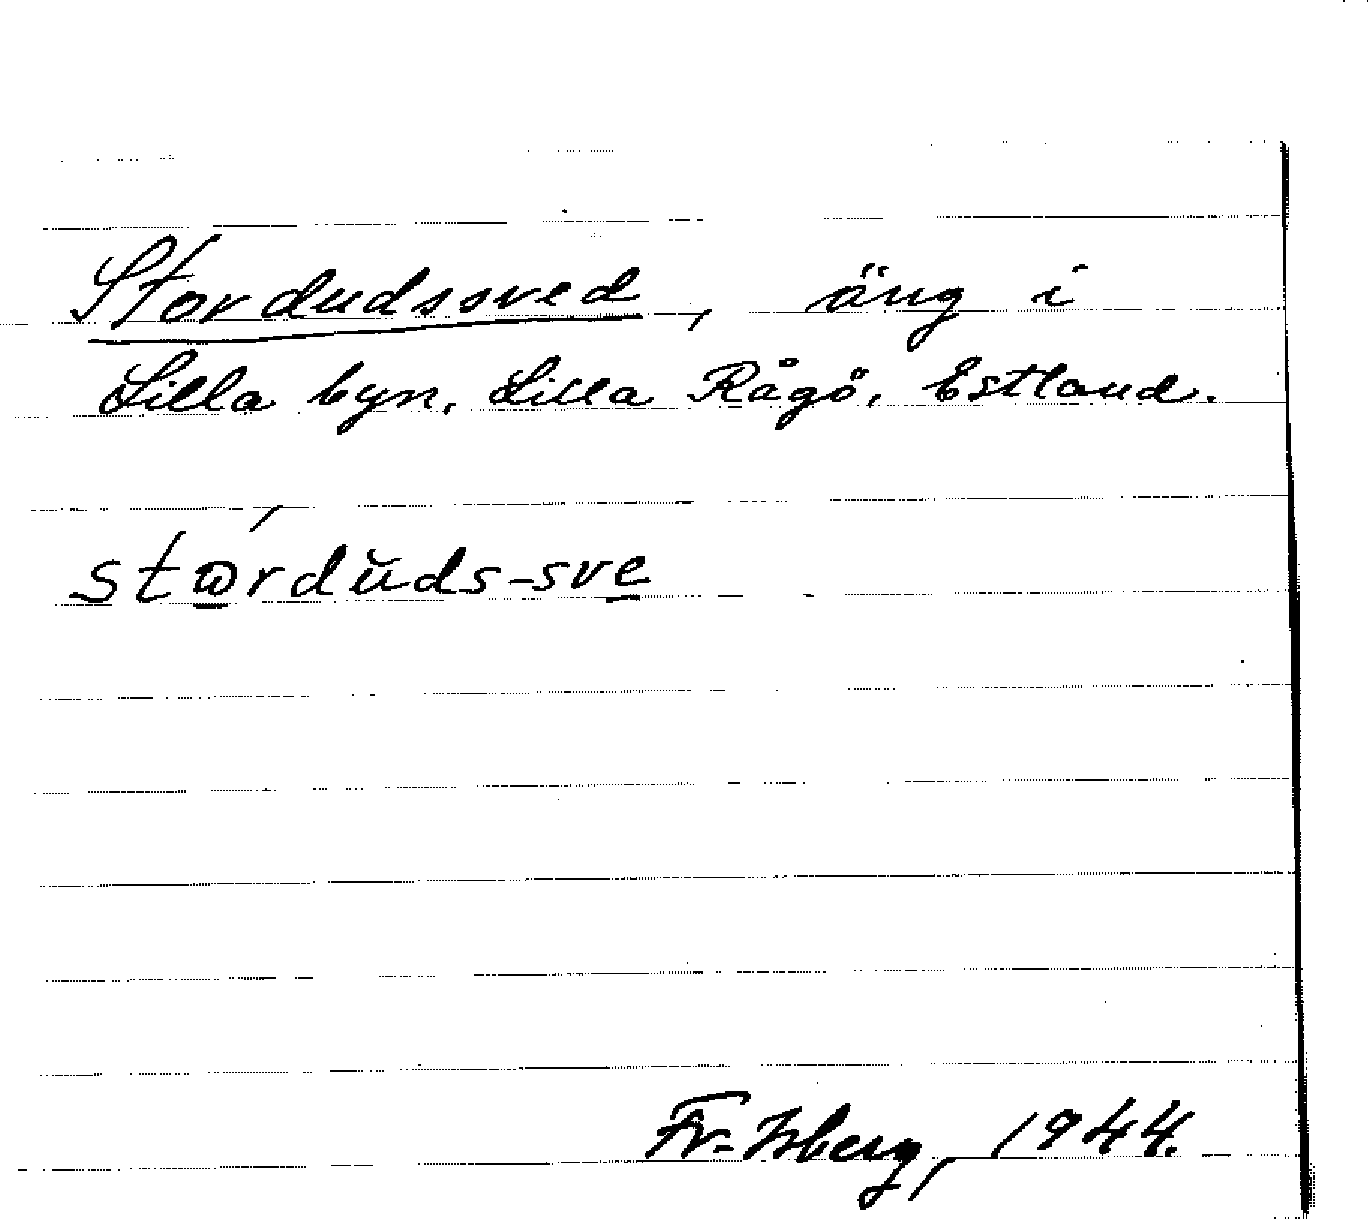 Stordudssved, äng i
Lilla byn, Lilla Rågö, Estland.
stώ̱rdŭds-sve̱
Fr. Isberg, 1944.